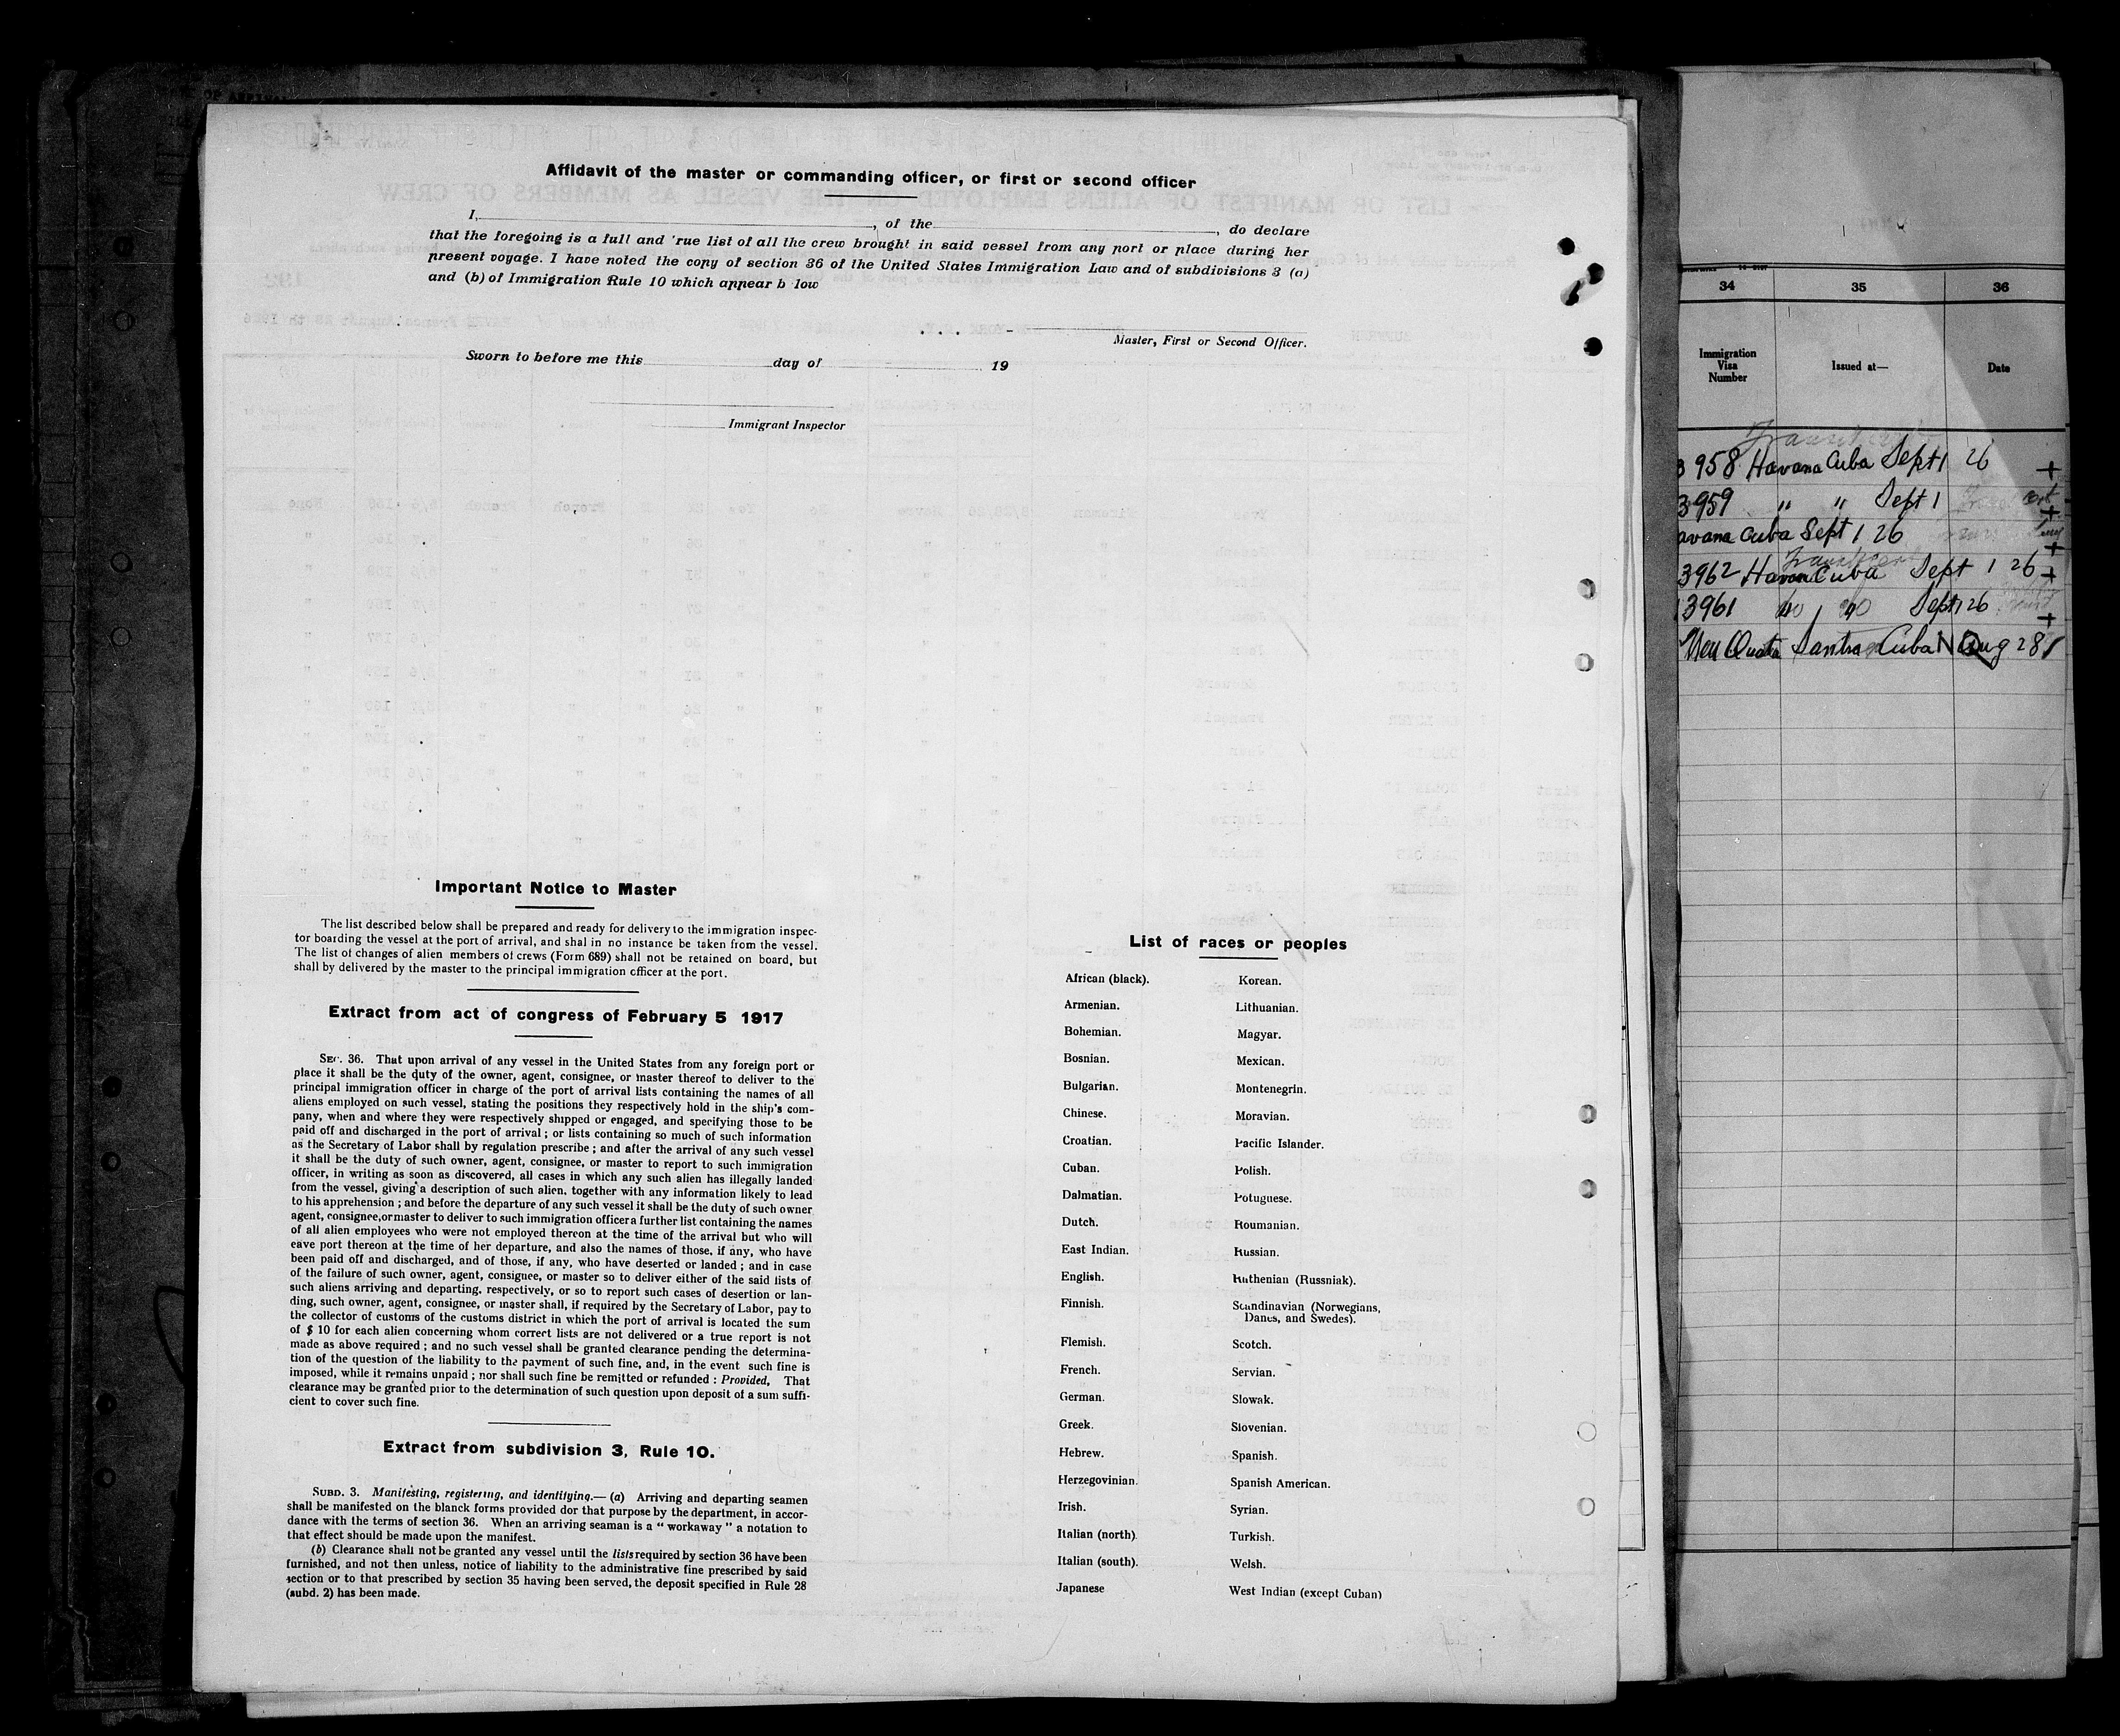 Affidavit of the master or commanding officer, or first or second officer
I, , of the , do declare
that the foregoing is a full and 'rue list of all the crew brought in said vessel from any port or place during her
present voyage. I have noted the copy of section 36 of the United States Immigration Law and of subdivisions 3 (a)
and (b) of Immigration Rule 10 which appear b low
Master, First or Second Officer.
Sworn to before me this day of 19
Immigrant Inspector
Important Notice to Master
The list described below shall be prepared and ready for delivery to the immigration inspec-
tor boarding the vessel at the port of arrival, and shal in no instance be taken from the vessel.
The list of changes of alien members of crews (Form 689) shall not be retained on board, but
shall by delivered by the master to the principal immigration officer at the port.
Extract from act of congress of February 5 1917
SEC. 36. That upon arrival of any vessel in the United States from any foreign port or
place it shall be the duty of the owner, agent, consignee, or master thereof to deliver to the
principal immigration officer in charge of the port of arrival lists containing the names of all
aliens employed on such vessel, stating the positions they respectively hold in the ship's com-
pany, when and where they were respectively shipped or engaged, and specifying those to be
paid off and discharged in the port of arrival ; or lists containing so much of such information
as the Secretary of Labor shall by regulation prescribe ; and after the arrival of any such vessel
it shall be the duty of such owner, agent, consignee, or master to report to such immigration
officer, in writing as soon as discovered, all cases in which any such alien has illegally landed
from the vessel, giving a description of such alien, together with any information likely to lead
to his apprehension ; and before the departure of any such vessel it shall be the duty of such owner
agent, consignee,ormaster to deliver to such immigration officer a further list containing the names
of all alien employees who were not employed thereon at the time of the arrival but who will
eave port thereon at the time of her departure, and also the names of those, if any, who have
been paid off and discharged, and of those, if any, who have deserted or landed ; and in case
of the failure of such owner, agent, consignee, or master so to deliver either of the said lists of
such aliens arriving and departing, respectively, or so to report such cases of desertion or lan-
ding, such owner, agent, consignee, or master shall, if required by the Secretary of Labor, pay to
the collector of customs of the customs district in which the port of arrival is located the sum
of $ 10 for each alien concerning whom correct lists are not delivered or a true report is not
made as above required ; and no such vessel shall be granted clearance pending the determina-
tion of the question of the liability to the payment of such fine, and, in the event such fine is
imposed, while it remains unpaid ; nor shall such fine be remitted or refunded : Provided, That
clearance may be granted prior to the determination of such question upon deposit of a sum suffi-
cient to cover such fine.
Extract from subdivision 3, Rule 10.
SUBD. 3. Manifesting, registering, and identifying.— (a) Arriving and departing seamen
shall be manifested on the blanck forms provided dor that purpose by the department, in accor-
dance with the terms of section 36. When an arriving seaman is a " workaway " a notation to
that effect should be made upon the manifest.
(b) Clearance shall not be granted any vessel until the lists required by section 36 have been
furnished, and not then unless, notice of liability to the administrative fine prescribed by said
section or to that prescribed by section 35 having been served, the deposit specified in Rule 28
(subd. 2) has been made.
List of races or peoples
African (black). Korean.
Armenian. Lithuanian.
Bohemian. Magyar.
Bosnian. Mexican.
Bulgarian. Montenegrin.
Chinese. Moravian.
Croatian. Pacific Islander.
Cuban. Polish.
Dalmatian. Potuguese.
Dutch. Roumanian.
East Indian. Russian.
English. Ruthenian (Russniak).
Finnish. Scandinavian (Norwegians,
Danes, and Swedes).
Flemish. Scotch.
French. Servian.
German. Slowak.
Greek. Slovenian.
Hebrew. Spanish.
Herzegovinian. Spanish American.
Irish. Syrian.
Italian (north). Turkish.
Italian (south). Welsh.
Japanese West Indian (except Cuban)
34 35 36
Immigration
Visa
Number
Issued at—
Date
958 Havana Cuba Sept 1 26
3959 " " Sept 1
avana Cuba Sept 1 26
3962 Havana Cuba Sept 1 26
3961 Sept 1 26
Cuba Aug 28